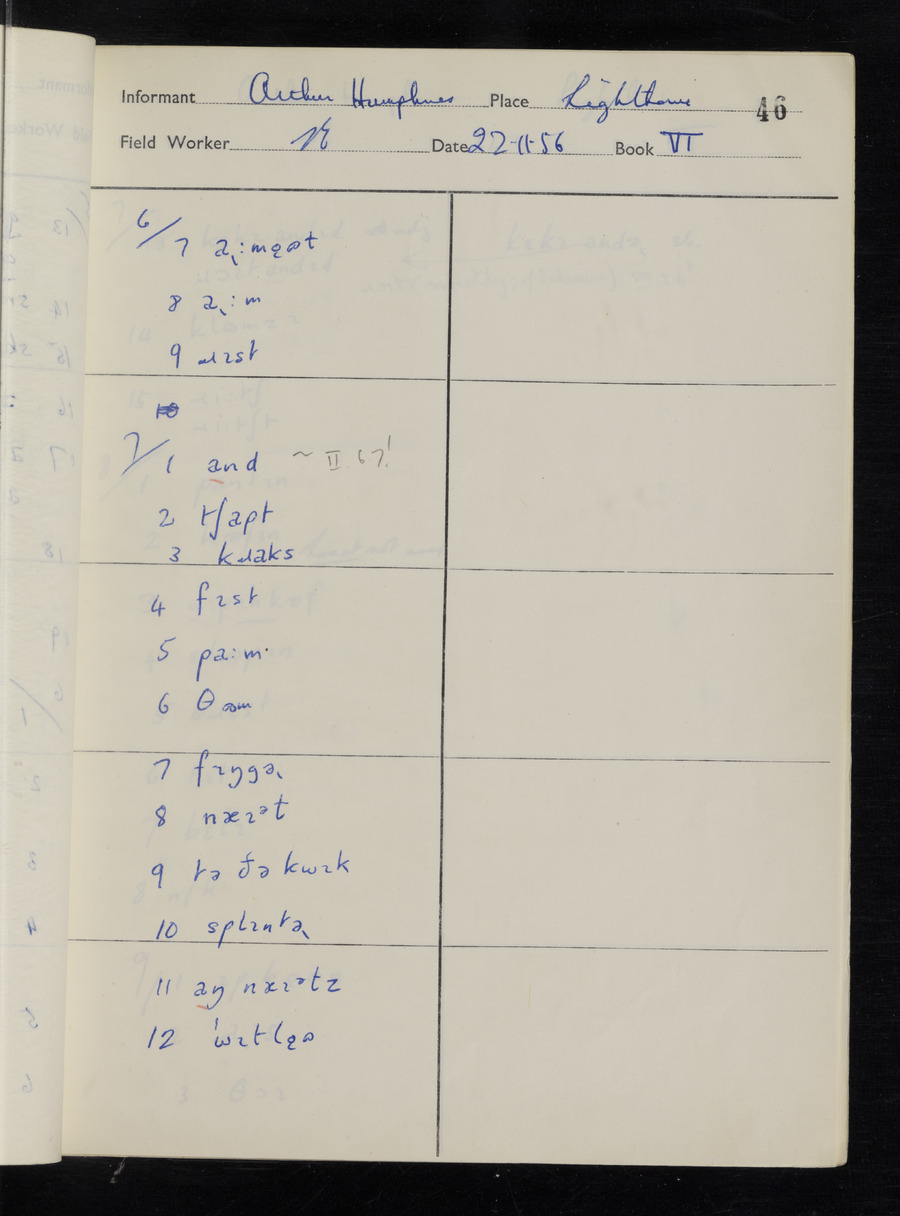 Informant Arthur Humphries Place Lighthorne 46
Field Worker Date 22-11-56 Book VI
6/7 aʴ:mɪət
8 aʴ:m
9 ɹɪst
10
7/1 and ~ II. 6 7!
2 tʃapt
3 kɹaks
4 fɪst
5 pa:m·
6 θəm
7 fɪŋgəʴ
8 næɪᵊt
9 tə ðə kwɪk
10 splɪntəʴ
11 aŋ næɪᵊtz
12 ˈwɪtləə